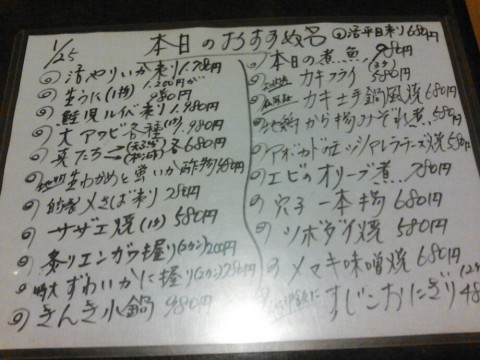 1/25 本日のおすすめ
活平目刺り 680円
活やりいか刺り 1.780円
生うに(1枚) 1.200円が 980円
鮭児ルイベ刺り 1.980円
大アワビ各種 (1ケ) 980円
真たち 各680円
生わかめと蛍いか酢物 480円
〆さば刺 280円
サザエ焼 (1ケ) 580円
炙りエンガワ握り (2カン) 200円
特大ずわいかに握り (2カン) 280円
きんき小鍋 980円
本日の煮魚 980円
カキフライ 580円
カキ土手鍋風焼 680円
から揚みぞれ煮 580円
アボカドのモッツァレラチーズ焼 580円
エビのオリーブ煮 780円
穴子一本揚 680円
ツボダイ焼 580円
メマキ味噌焼 680円
すじこおにぎり 48